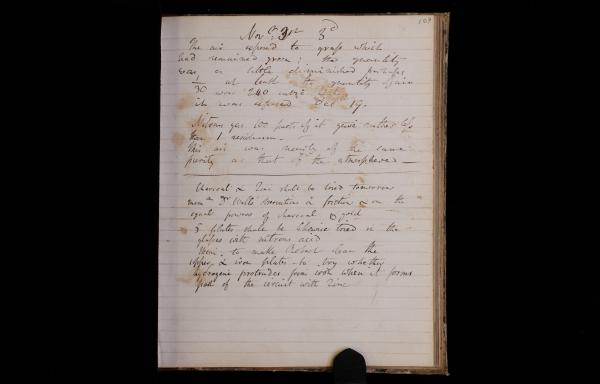 109
Nov.r 3rd 3d
The air exposed to grass which
had remained green; the quantity
was a little diminished perhaps
at the quantity again
was 240 cubic
it was exposed Dec 19.
Nitrous gas 100 parts of it gave rather less
than 1 residuum.
This air was nearly of the same
purity as that of the atmosphere
Charcoal & Zinc shall be tried tomorrow
mem Dr Wells on friction & on the
equal powers of charcoal & gold
5 plates shall be likewise tried in the
glasses with nitrous acid
Mem. to make Robert clean the
copper & iron plates to try whether
hydrogene protrudes from iron when it forms
part of the circuit with Zinc